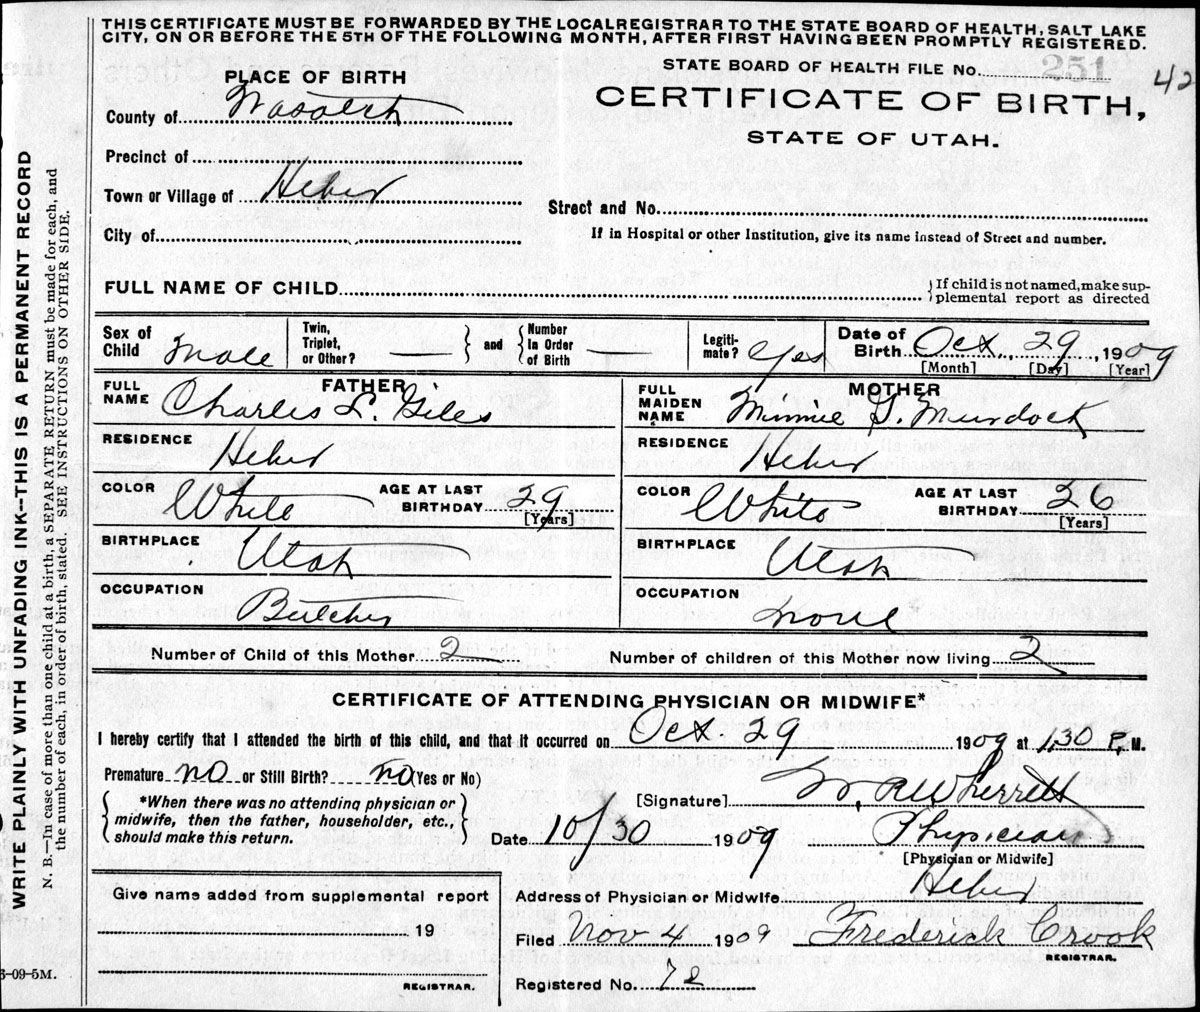 THIS CERTIFICATE MUST BE FORWARDED BY THE LOCAL REGISTRAR TO THE STATE BOARD OF HEALTH, SALT LAKE
CITY, ON OR BEFORE THE 5TH OF THE FOLLOWING MONTH, AFTER FIRST HAVING BEEN PROMPTLY REGISTERED.
PLACE OF BIRTH
STATE BOARD OF HEALTH FILE No. 251 42
County of Wasatch
CERTIFICATE OF BIRTH,
STATE OF UTAH.
Precinct of
Town or Village of Heber
Street and No.
City of
If in Hospital or other Institution, give its name instead of Street and number.
FULL NAME OF CHILD
If child is not named, make sup-
plemental report as directed
Sex of Child Male
Twin, Triplet, or Other? —
and
Number In Order of Birth —
Legiti-mate? Yes
Date of Birth Oct., 29, 1909
[Month] [Day] [Year]
FATHER
FULL NAME Charles L. Giles
RESIDENCE Heber
COLOR White
AGE AT LAST BIRTHDAY 29
[Years]
BIRTHPLACE Utah
OCCUPATION Butcher
MOTHER
FULL MAIDEN NAME Minnie G. Murdock
RESIDENCE Heber
COLOR White
AGE AT LAST BIRTHDAY 26
[Years]
BIRTHPLACE Utah
OCCUPATION none
Number of Child of this Mother 2
Number of children of this Mother now living 2
CERTIFICATE OF ATTENDING PHYSICIAN OR MIDWIFE*
I hereby certify that I attended the birth of this child, and that it occurred on Oct. 29 1909 at 1,30 P.M.
Premature no or Still Birth? no (Yes or No)
*When there was no attending physician or
midwife, then the father, householder, etc.,
should make this return.
[Signature] W, R Wherritt
Date 10/30 1909 Physician
[Physician or Midwife]
Give name added from supplemental report
19
REGISTRAR.
Address of Physician or Midwife Heber
Filed Nov 4 1909 Frederick Crook
REGISTRAR.
Registered No. 72
3-09-5M.
WRITE PLAINLY WITH UNFADING INK--THIS IS A PERMANENT RECORD
N. B.—In case of more than one child at a birth, a SEPARATE RETURN must be made for each, and
the number of each, in order of birth, stated. SEE INSTRUCTIONS ON OTHER SIDE.